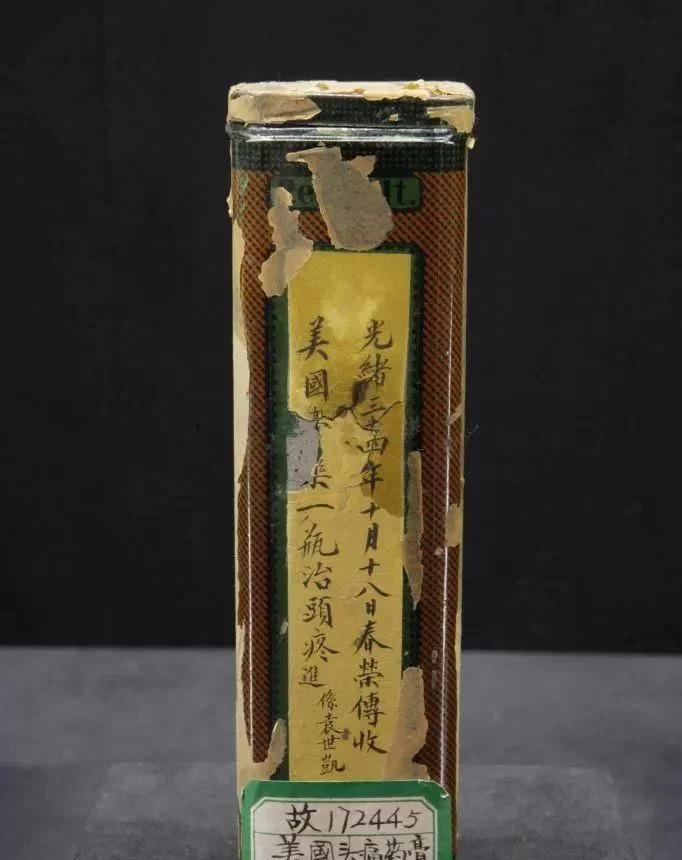 lt.
光緒三十四年十月十八日春榮傳收
美國 一瓶治頭疼進
係袁世凱
故172445
美國头痛药膏